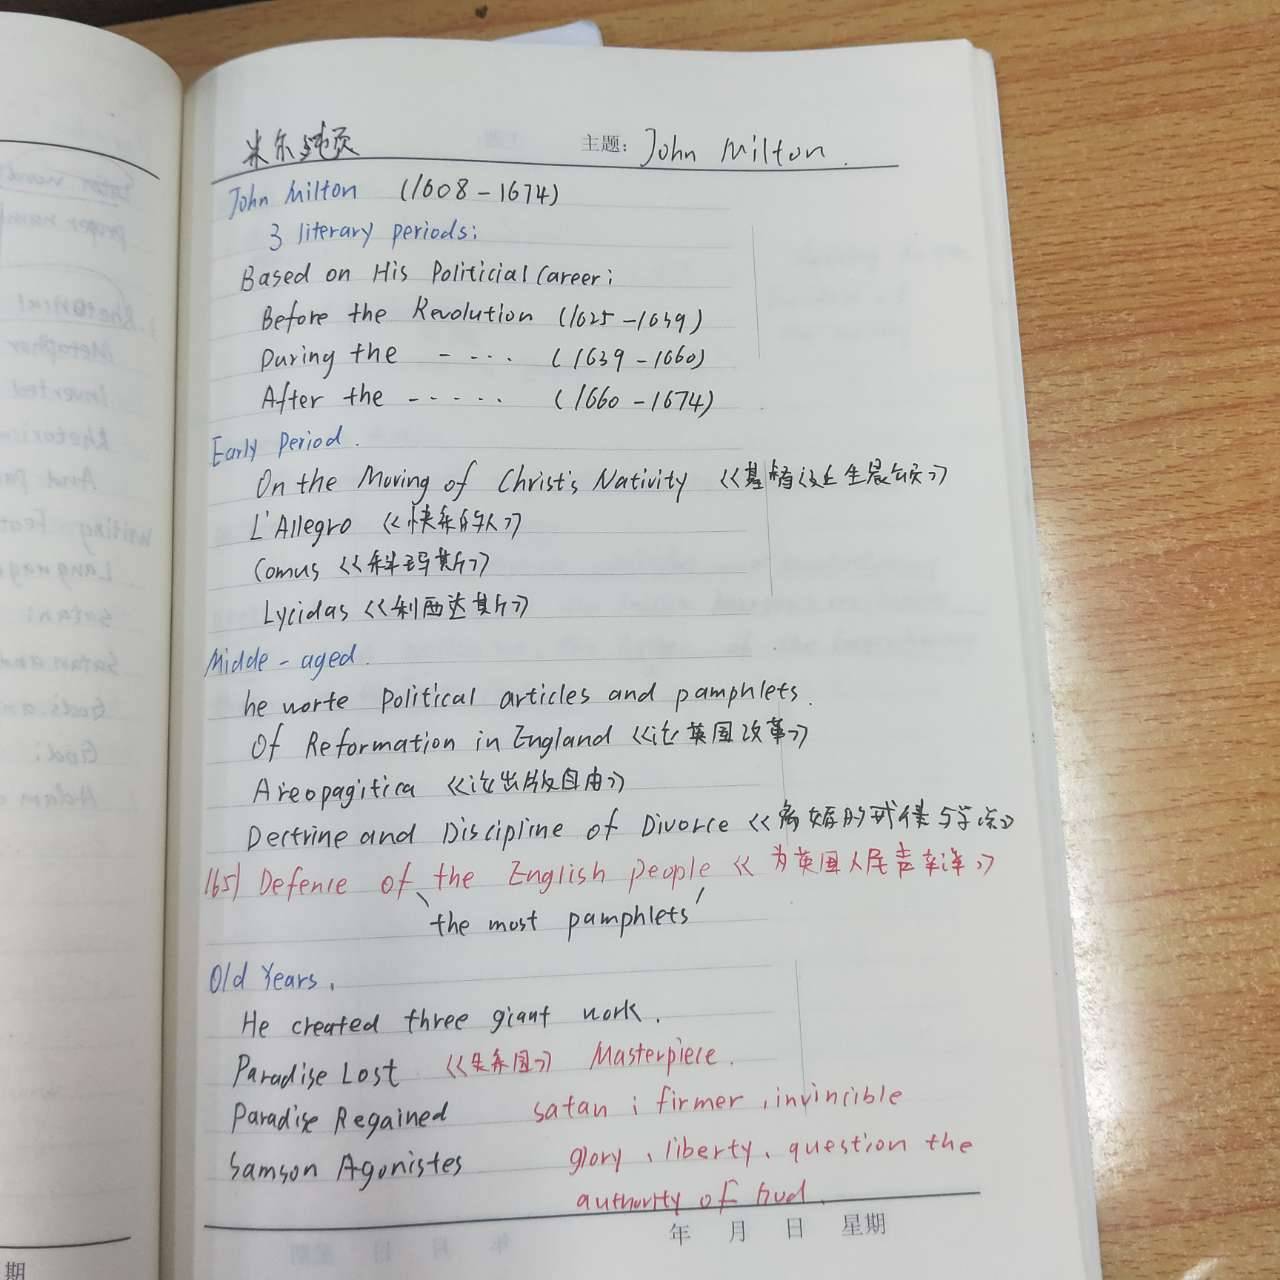 米尔顿
主题: John Milton.
John Milton (1608-1674)
3 literary periods:
Based on His Politicial Career:
Before the Revolution (1625-1639)
During the - ---- (1639-1660)
After the ------ (1660-1674)
Early Period.
On the Moring of Christ's Nativity 《基督诞生晨颂》
L'Allegro 《快乐的人》
Comus 《科玛斯》
Lycidas 《利西达斯》
Midde-aged.
he worte Political articles and pamphlets.
Of Reformation in England 《论英国改革》
Areopagitica 《论出版自由》
Dectrine and Discipline of Divorce 《离婚的
1651 Defence of the English people 《为英国人民声辩》
the most pamphlets
Old Years.
He created three giant work.
Paradise Lost 《失乐园》 Masterpiece.
Paradise Regained satan: firmer, invincible
Samson Agonistes glory、liberty、question the
authority of God.
年 月 日 星期
期